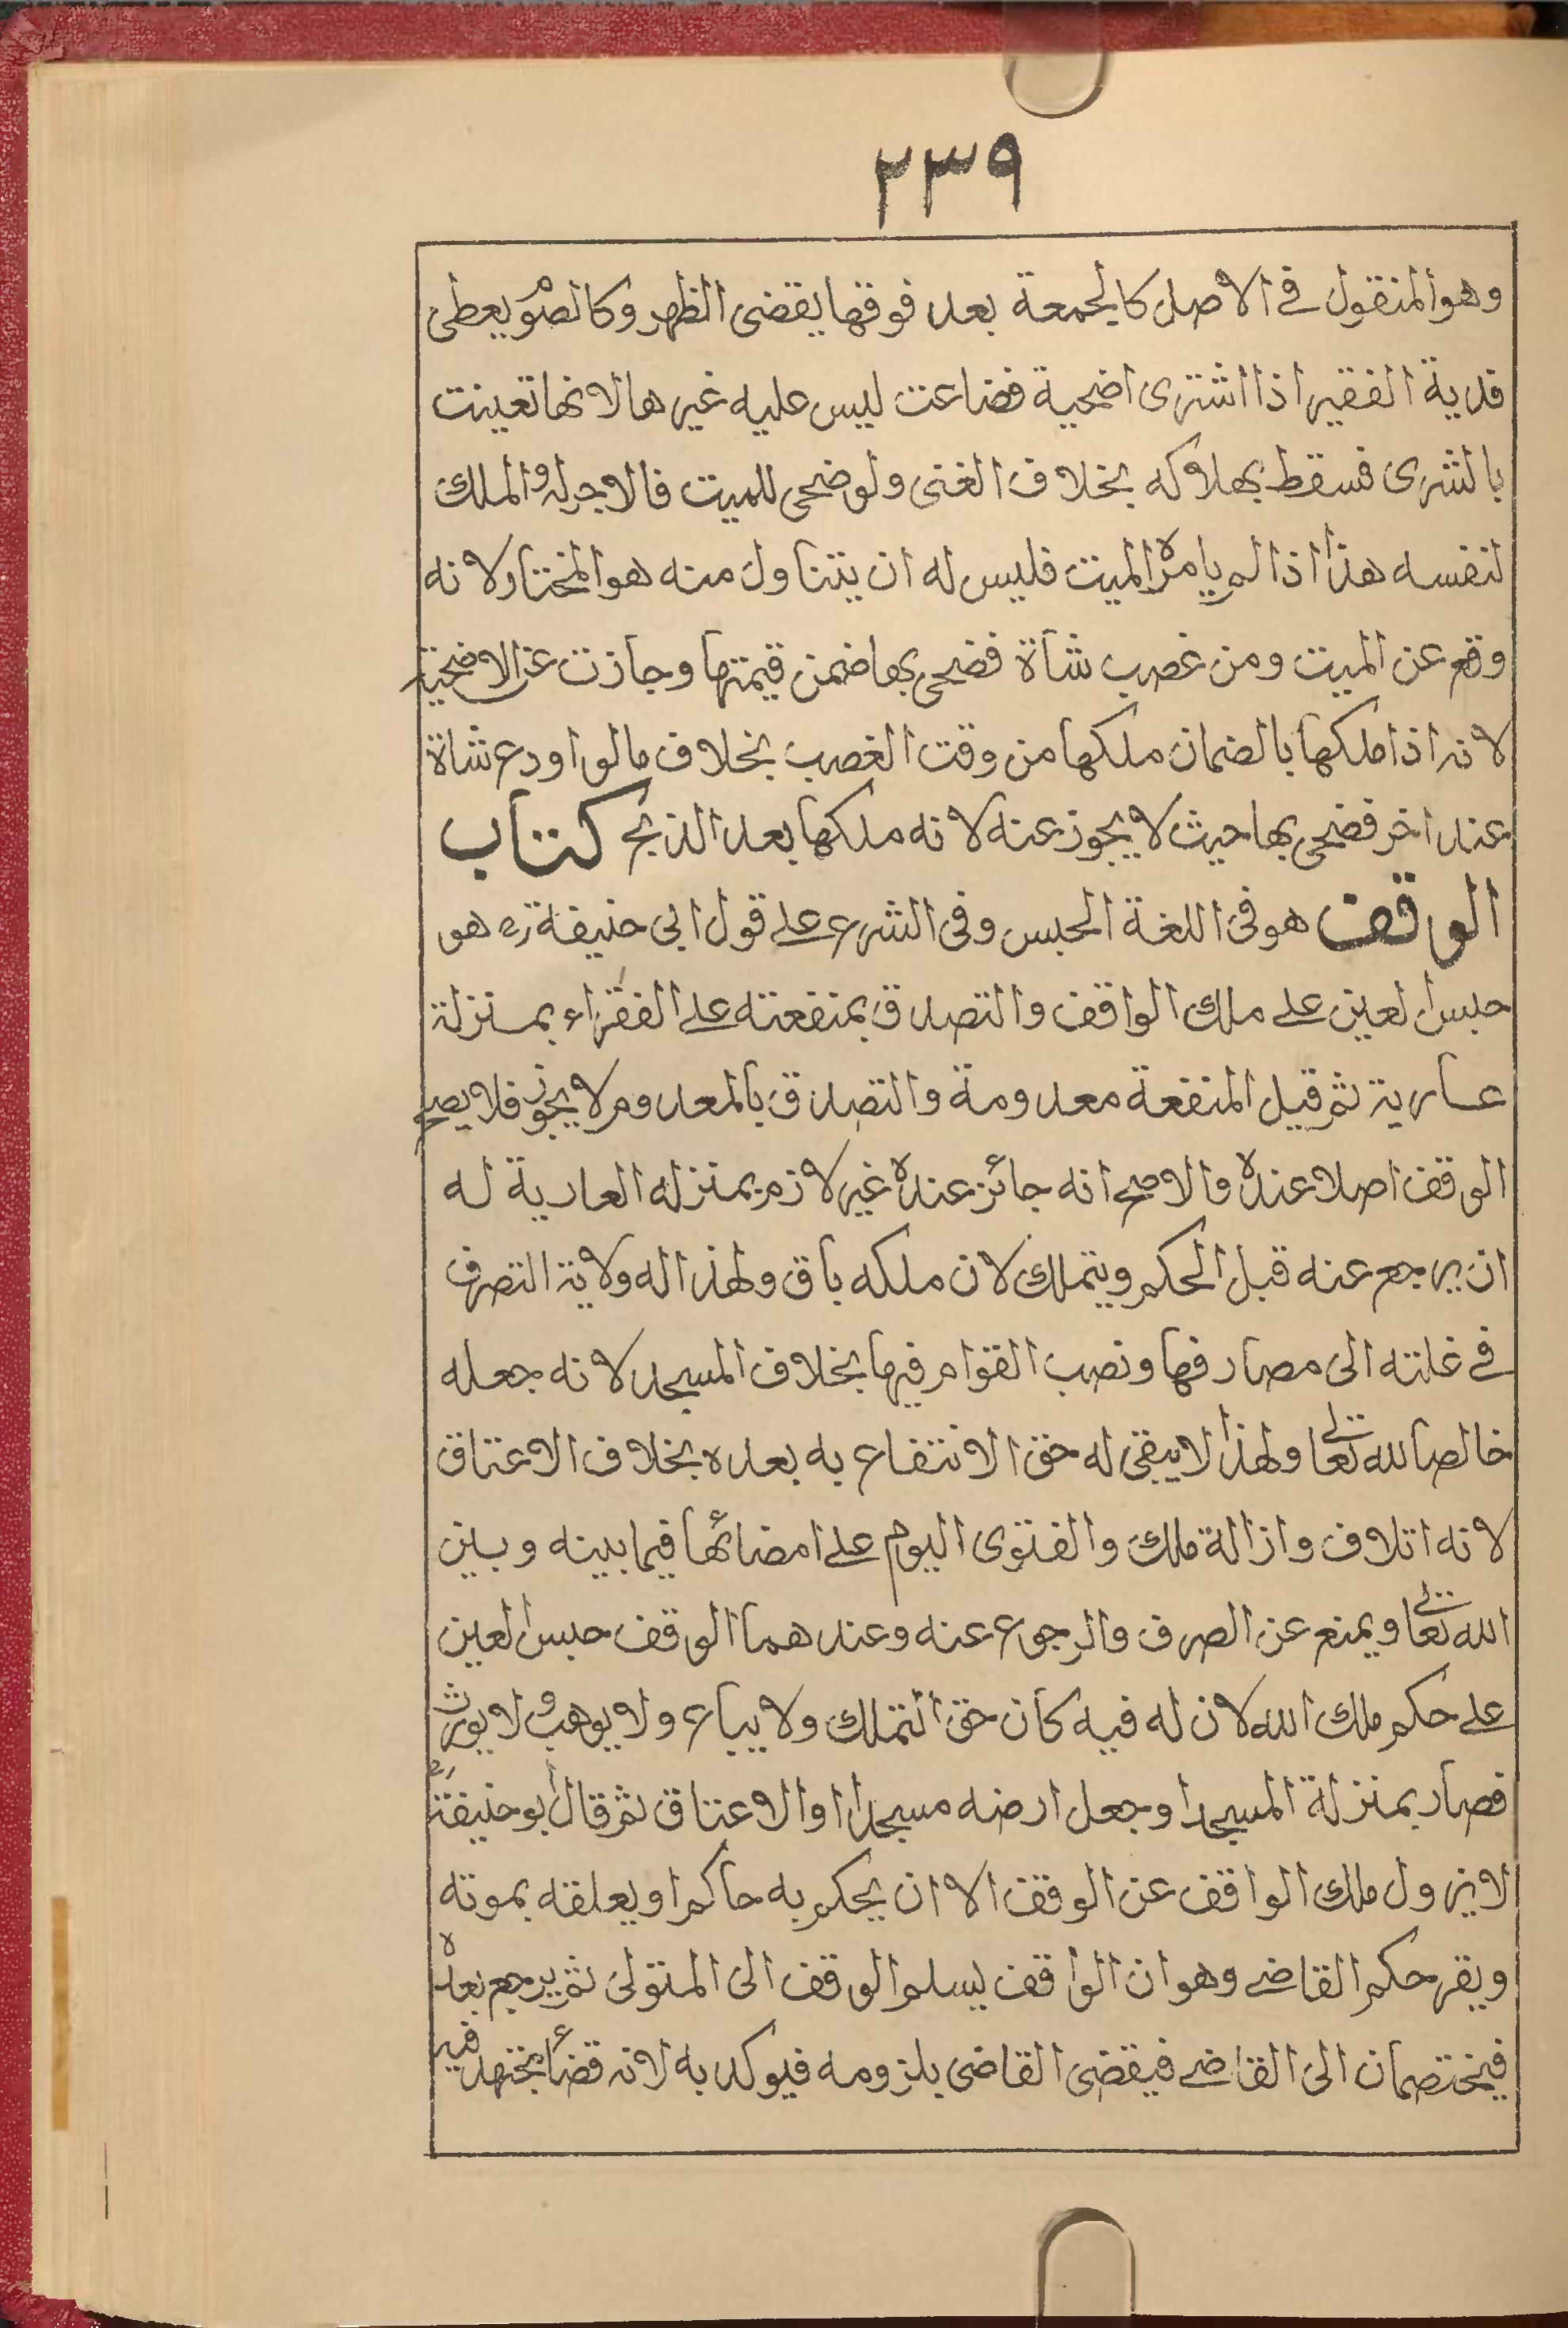 ٢٣٩
وهو المنقول في الاصل كالجمعة بعد فوقها يقضى الظهر وكالصوم يعطى
فدية الفقير اذا اشترى اضحية فضاعت ليس عليه غيرها لانها تعينت
بالشرى فسقط بهلاكه بخلاف الغنى ولو ضحى للميت فالاجر له والملك
لنفسه هذا اذا لم يامره الميت فليس له ان يتناول منه هو المختار لانه
وقع عن الميت ومن غصب شاة فضحى بها ضمن قيمتها وجازت عن الاضحية
لانه اذا ملكها بالضمان ملكها من وقت الغصب بخلاف مالو اودع شاة
عند اخر فضحى بها حيث لا يجوز عنه لانه ملكها بعد الذبح كتاب
الوقف هو فى اللغة الحبس وفى الشرع على قول ابى حنيفة رح هو
حبس العين على ملك الواقف والتصدق بمنفعته على الفقراء بمنزلة
عارية ثم قيل المنفعة معدومة والتصدق بالمعدوم لا يجوز فلا يصح
الوقف اصلا عنده والاصح انه جائز عنده غير لازم بمنزله العارية له
ان يرجع عنه قبل الحكم ويتملك لان ملكه باق ولهذا له ولاية التصرف
في غلته الى مصارفها ونصب القوام فيها بخلاف المسجد لانه جعله
خالصا لله تعالى ولهذا لا يبقى له حق الانتفاع به بعده بخلاف الاعتاق
لانه اتلاف وازالة ملك والفتوى اليوم على امضائها فيما بينه وبين
الله تعالى ويمنع عن الصرف والرجوع عنه وعندهما الوقف حبس العين
على حكم ملك الله لان له فيه كان حق التملك ولا يباع ولا يوهب ولا يورث
فصار بمنزلة المسجد او جعل ارضه مسجدا او الاعتاق ثم قال ابو حنيفة رح
لا يزول ملك الواقف عن الوقف الا ان يحكم به حاكم او يعلقه بموته
ويقر حكم القاضے وهو ان الواقف يسلم الوقف الى المتولى ثم يرجع بعده
فيختصمان الى القاضے فيقضى القاضى بلزومه فيوكد به لانه قضاء بمجتهد فيه